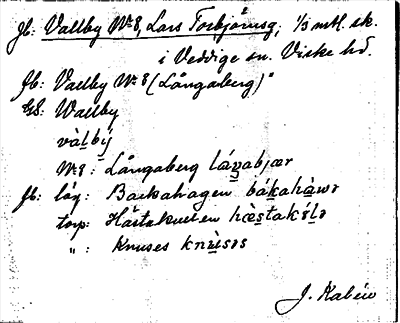 Jb: Vallby No 8, Lars Torbjörnsg, 1/3 mtl. sk.
i Veddige sn. Viske hd.
Jb: Vallby No 8 (Långaberg)"
GS: Wallby
vàlbý
No 8: Långaberg láŋabjær
Jb: läg: Backahagen bákahàwə
torp: Hästakullen hæ̀stakúlə
" : Knuses knʉ̀səs
J. Kalén